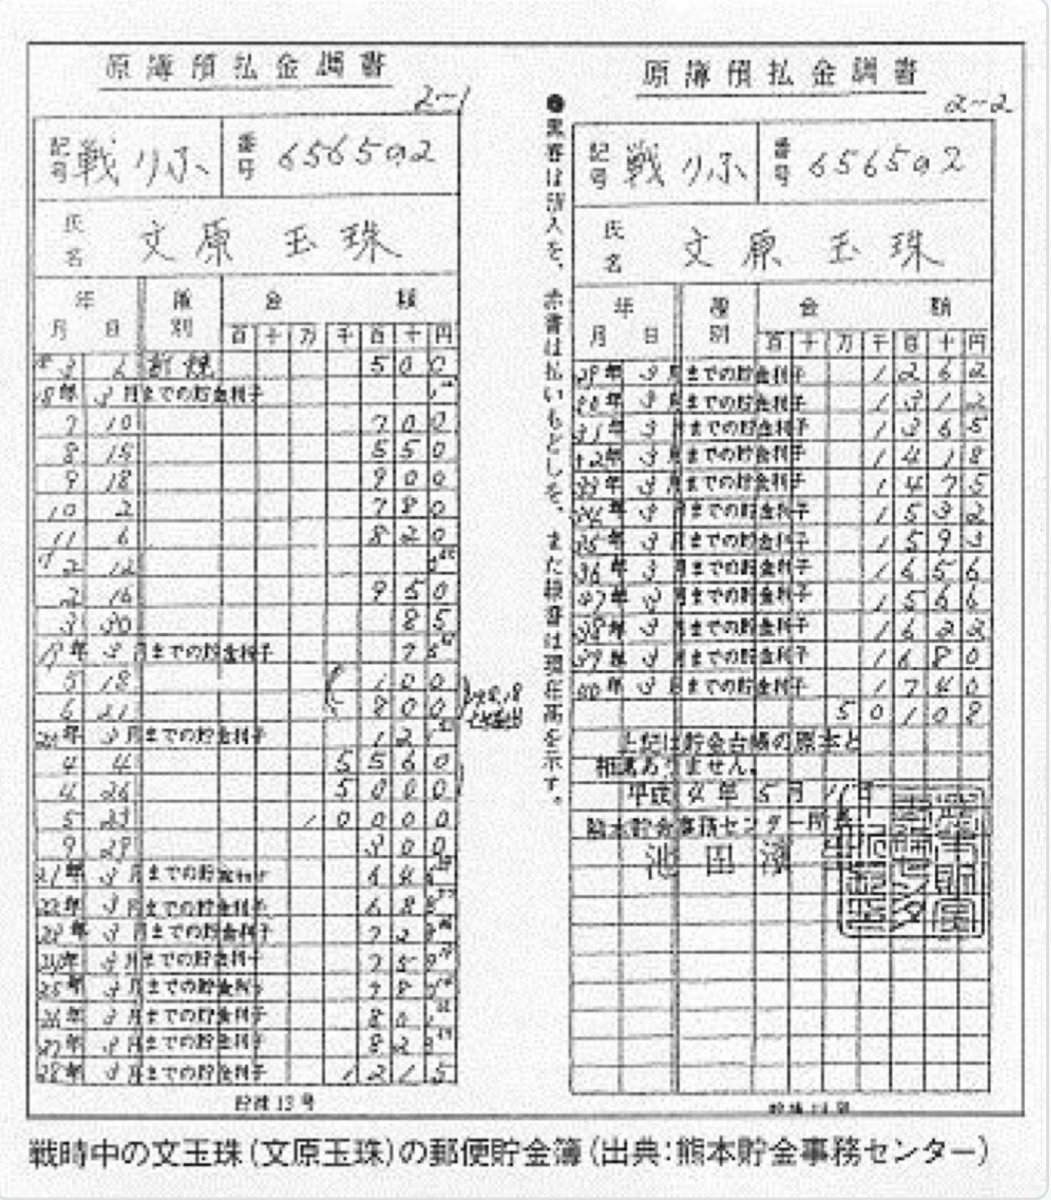 原簿預払金調書
2-1
記号 戦りふ 番号 656502
氏名 文原玉珠
年月日 種別 金額
百十万千百十円
3 6 新規 500
18年3月までの貯金利子
7 10 700
8 15 550
9 18 900
10 2 780
11 6 820
2 12
2 16 950
3 30 85
19年3月までの貯金利子
5 18 120
6 21 800
20年3月までの貯金利子
4 4 5560
4 26 5000
5 23 10000
9 29 300
21年3月までの貯金利子
22年3月までの貯金利子
23年3月までの貯金利子
24年3月までの貯金利子
25年3月までの貯金利子
26年3月までの貯金利子
27年3月までの貯金利子
28年3月までの貯金利子 1215
●黒書は預入を、赤書は払いもどしを、また緑書は現在高を示す。
原簿預払金調書
2-2
記号 戦りふ 番号 656502
氏名 文原玉珠
年月日 種別 金額
百十万千百十円
29年3月までの貯金利子 1262
30年3月までの貯金利子 1312
31年3月までの貯金利子 1365
年3月までの貯金利子 1418
33年3月までの貯金利子 1475
34年3月までの貯金利子 1532
35年3月までの貯金利子 1593
36年3月までの貯金利子 1656
年3月までの貯金利子 1566
38年3月までの貯金利子 1622
39年3月までの貯金利子 1680
40年3月までの貯金利子 1740
50108
上記は貯金台帳の原本と
相違ありません。
平成4年5月 日
熊本貯金事務センター所長
池田
戦時中の文玉珠(文原玉珠)の郵便貯金簿(出典:熊本貯金事務センター)